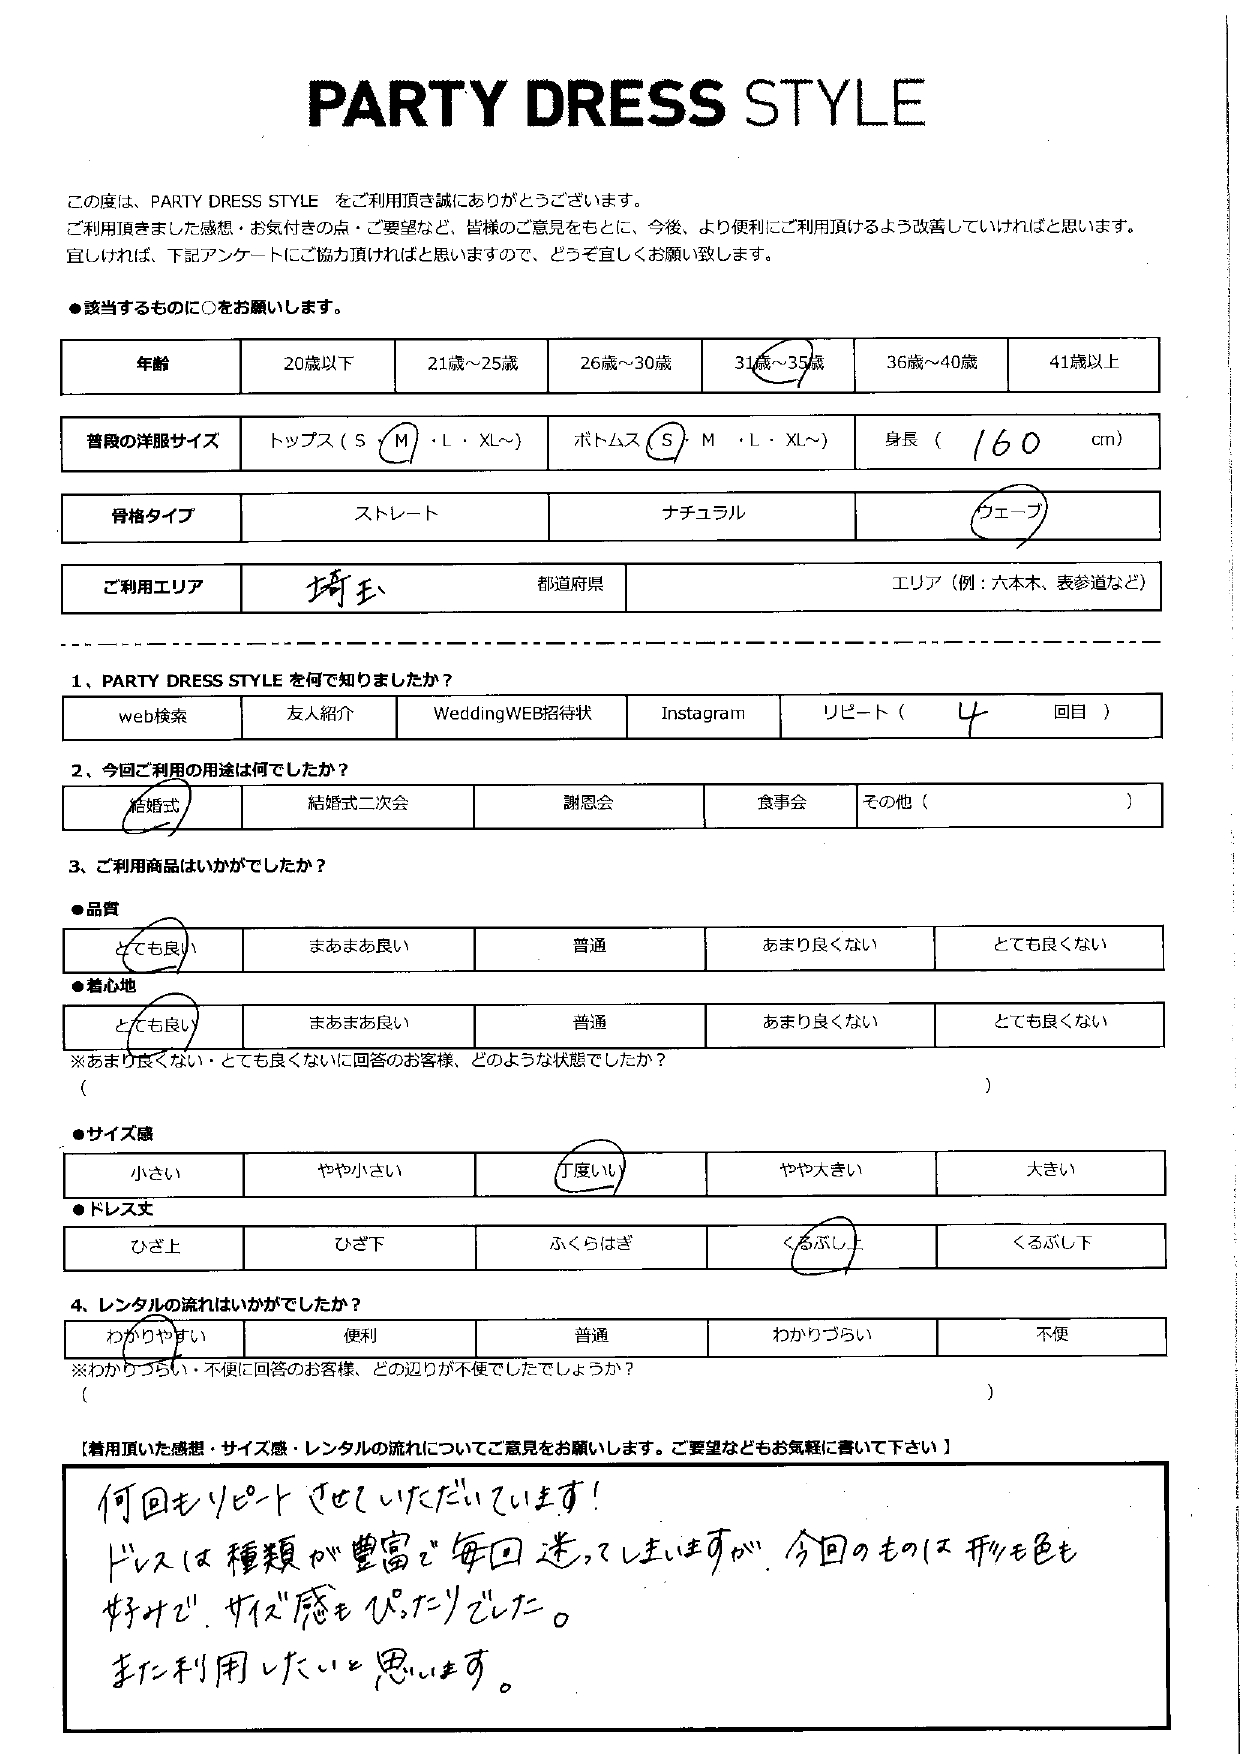 PARTY DRESS STYLE
この度は、PARTY DRESS STYLE をご利用頂き誠にありがとうございます。
ご利用頂きました感想・お気付きの点・ご要望など、皆様のご意見をもとに、今後、より便利にご利用頂けるよう改善していければと思います。
宜しければ、下記アンケートにご協力頂ければと思いますので、どうぞ宜しくお願い致します。
●該当するものに○をお願いします。
年齢 20歳以下 21歳～25歳 26歳～30歳 31歳～35歳 36歳～40歳 41歳以上
普段の洋服サイズ トップス ( S ・ M ・L ・ XL～) ボトムス ( S ・ M ・L ・ XL～) 身長 ( 160 cm)
骨格タイプ ストレート ナチュラル ウェーブ
ご利用エリア 埼玉 都道府県 エリア（例：六本木、表参道など）
1、PARTY DRESS STYLE を何で知りましたか？
web検索 友人紹介 WeddingWEB招待状 Instagram リピート ( 4 回目 )
2、今回ご利用の用途は何でしたか？
結婚式 結婚式二次会 謝恩会 食事会 その他 ( )
3、ご利用商品はいかがでしたか？
●品質
とても良い まあまあ良い 普通 あまり良くない とても良くない
●着心地
とても良い まあまあ良い 普通 あまり良くない とても良くない
※あまり良くない・とても良くないに回答のお客様、どのような状態でしたか？
( )
●サイズ感
小さい やや小さい 丁度いい やや大きい 大きい
●ドレス丈
ひざ上 ひざ下 ふくらはぎ くるぶし上 くるぶし下
4、レンタルの流れはいかがでしたか？
わかりやすい 便利 普通 わかりづらい 不便
※わかりづらい・不便に回答のお客様、どの辺りが不便でしたでしょうか？
( )
【着用頂いた感想・サイズ感・レンタルの流れについてご意見をお願いします。ご要望などもお気軽に書いて下さい 】
何回もリピートさせていただいています！
ドレスは種類が豊富で毎回迷ってしまいますが、今回のものは形も色も
好みで、サイズ感もぴったりでした。
また利用したいと思います。